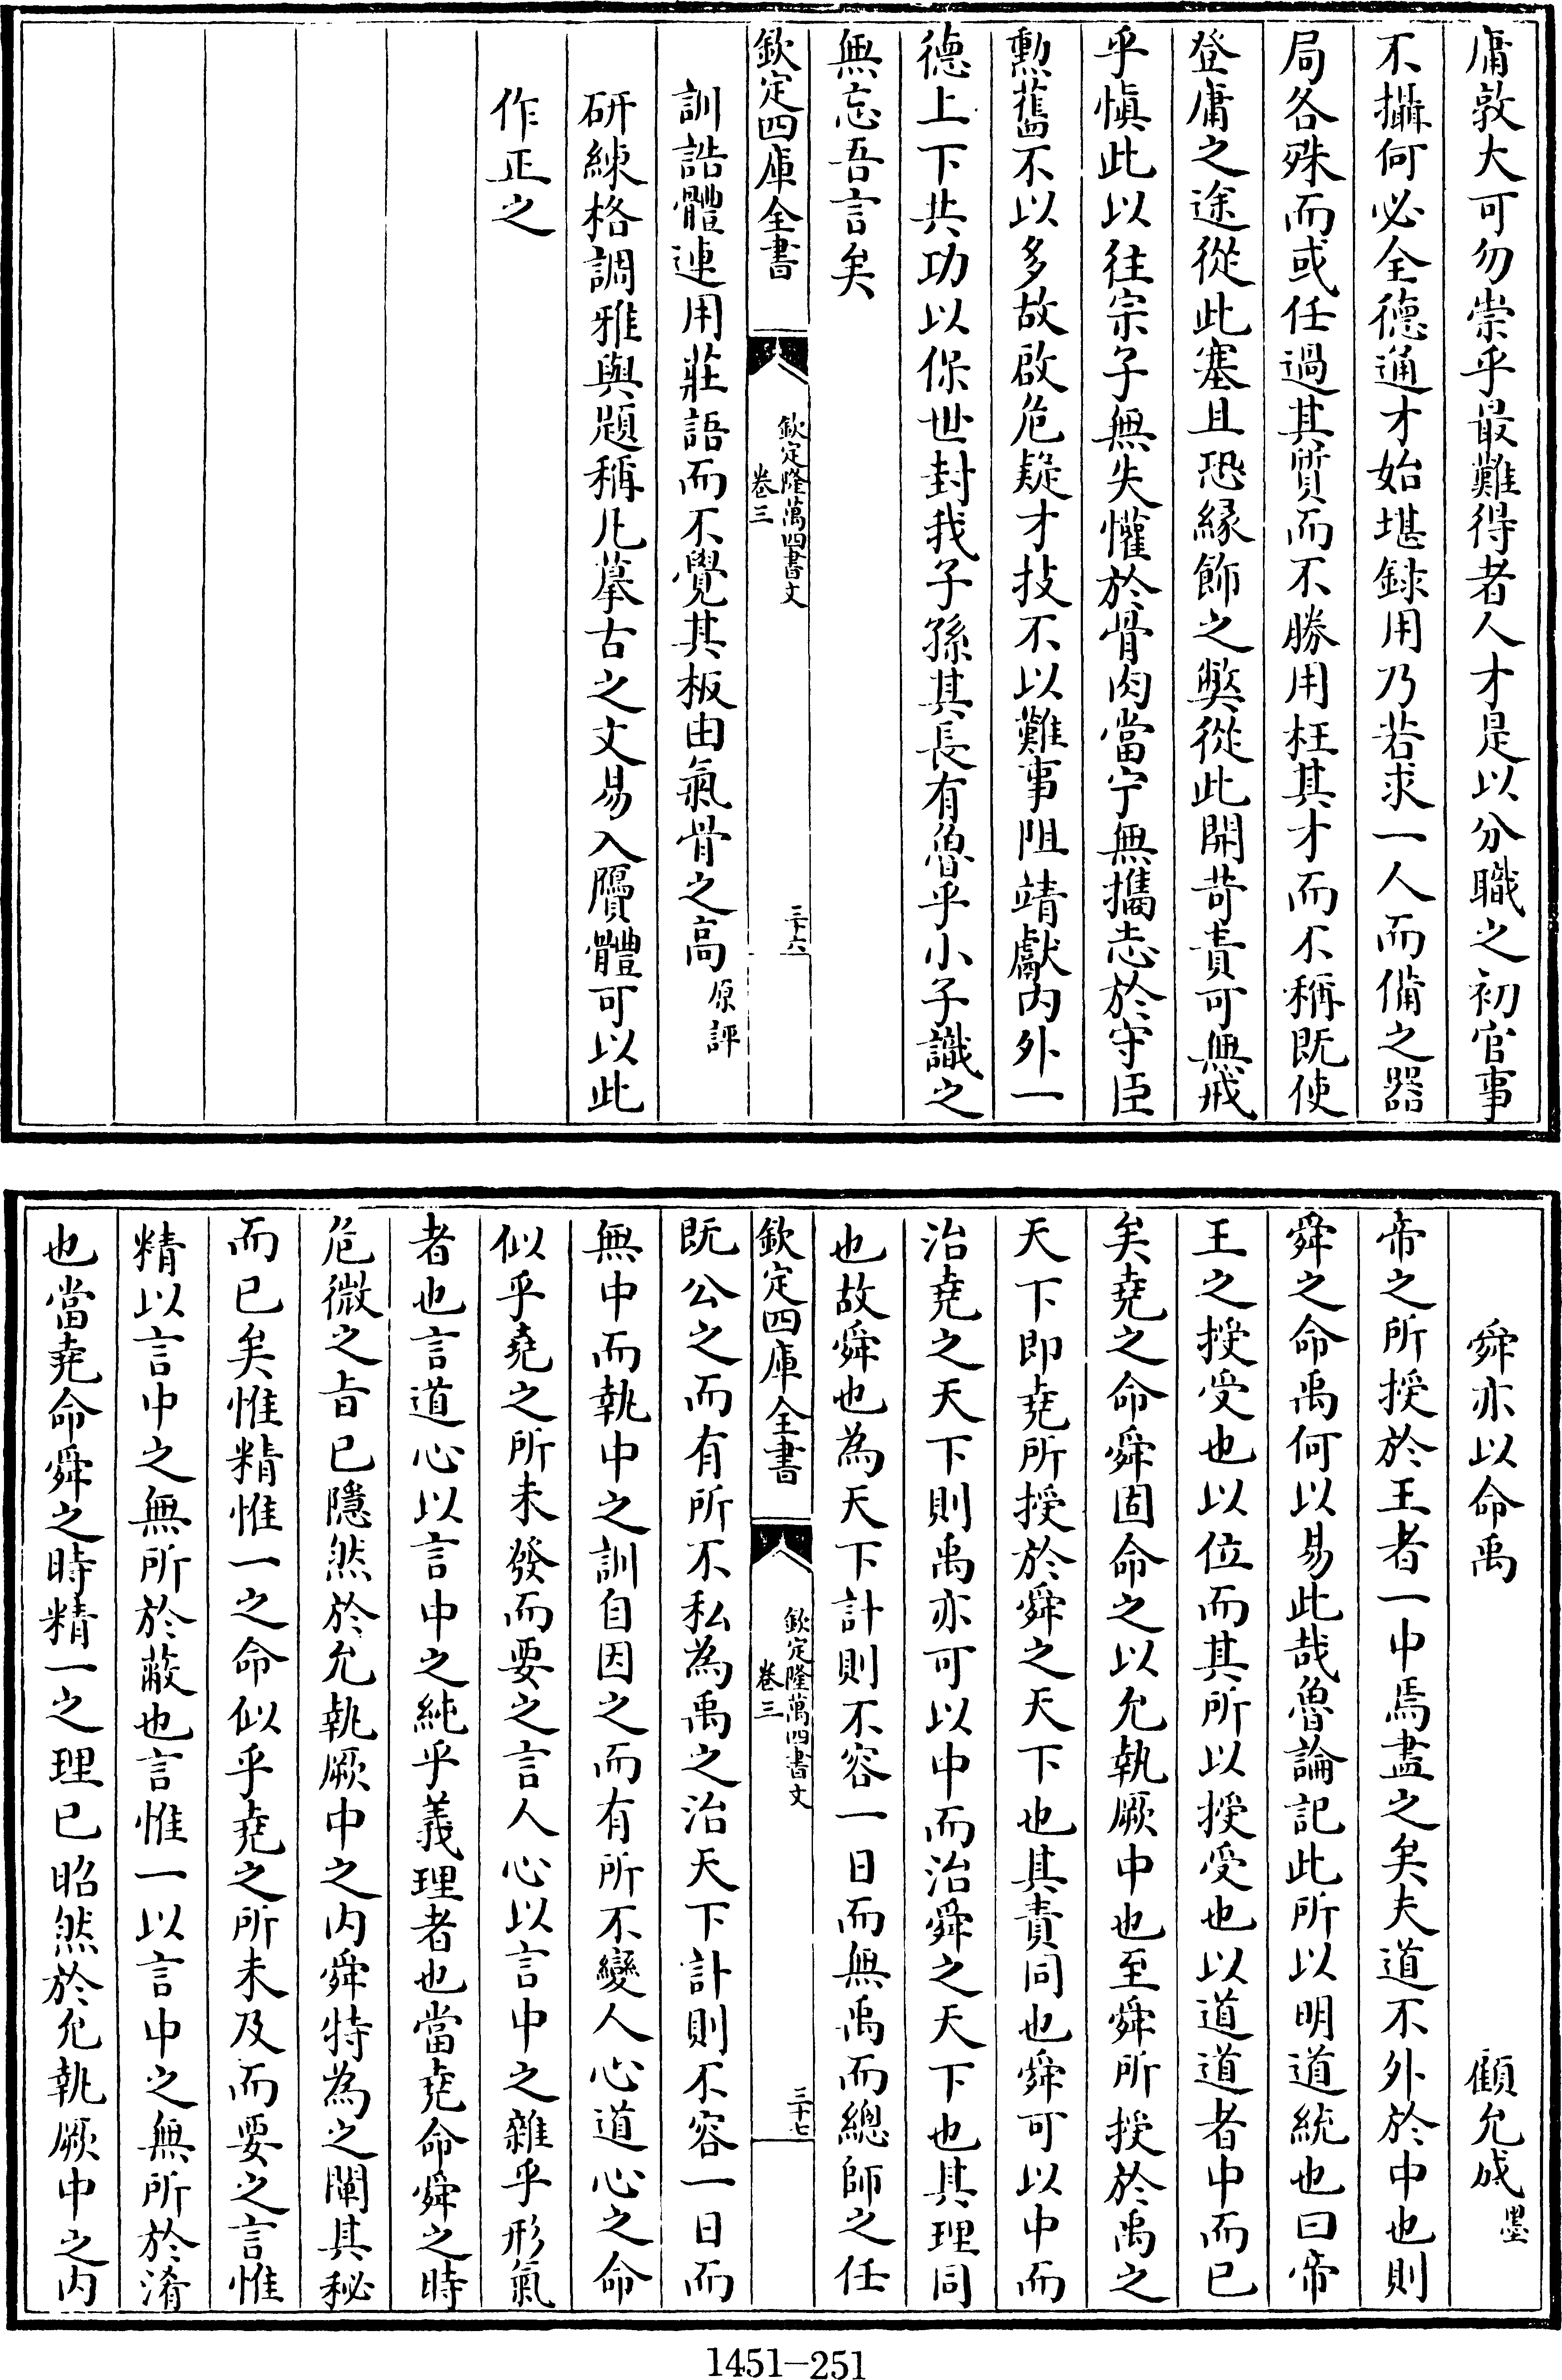 庸敦大可勿崇乎最難得者人才是以分職之初官事
不攝何必全德通才始堪録用乃若求一人而備之器
局各殊而或任過其質而不勝用枉其才而不稱既使
登庸之途從此塞且恐緣飾之弊從此開苛責可無戒
乎慎此以往宗子無失懽於骨肉當宁無攜志於守臣
勲舊不以多故啟危疑才技不以難事阻靖獻内外一
德上下共功以保世封我子孫其長有魯乎小子識之
無忘吾言矣
欽定四庫全書
欽定隆萬四書文
卷三
三十六
訓誥體連用莊語而不覺其板由氣骨之高原評
研練格調雅與題稱凡摹古之文易入贗體可以此
作正之
舜亦以命禹
顧允成墨
帝之所授於王者一中焉盡之矣夫道不外於中也則
舜之命禹何以易此哉魯論記此所以明道統也曰帝
王之授受也以位而其所以授受也以道道者中而已
矣堯之命舜固命之以允執厥中也至舜所授於禹之
天下即堯所授於舜之天下也其責同也舜可以中而
治堯之天下則禹亦可以中而治舜之天下也其理同
也故舜也為天下計則不容一日而無禹而總師之任
欽定四庫全書
欽定隆萬四書文
卷三
三十七
既公之而有所不私為禹之治天下計則不容一日而
無中而執中之訓自因之而有所不變人心道心之命
似乎堯之所未發而要之言人心以言中之雜乎形氣
者也言道心以言中之純乎義理者也當堯命舜之時
危微之旨已隱然於允執厥中之内舜特為之闡其秘
而已矣惟精惟一之命似乎堯之所未及而要之言惟
精以言中之無所於蔽也言惟一以言中之無所於淆
也當堯命舜之時精一之理已昭然於允執厥中之内
1451—251